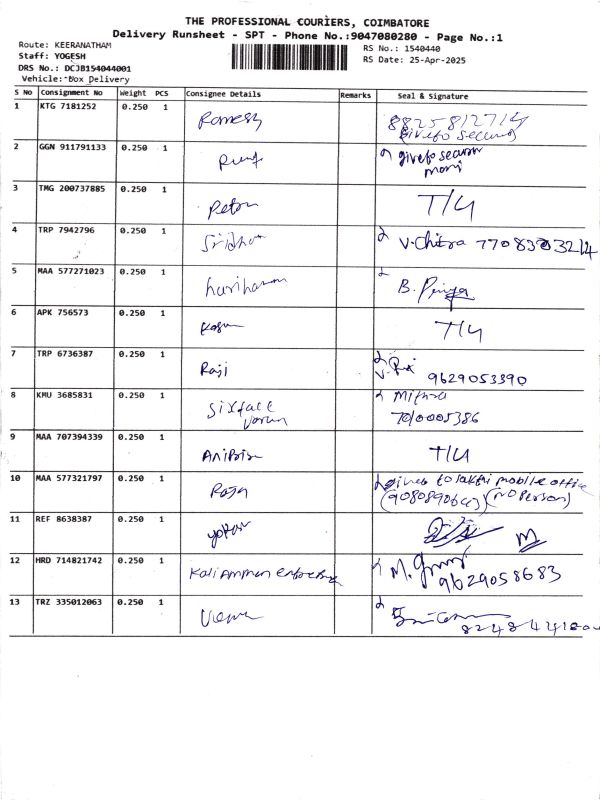 THE PROFESSIONAL COURIERS, COIMBATORE
Delivery Runsheet - SPT - Phone No.:9047080280 - Page No.:1
Route: KEERANATHAM
RS No.: 1540440
Staff: YOGESH
RS Date: 25-Apr-2025
DRS No.: DCJB154044001
Vehicle: Box Delivery
S No Consignment No Weight PCS Consignee Details Remarks Seal & Signature
1 KTG 7181252 0.250 1 Ramesh 8825812714
(give to security)
2 GGN 911791133 0.250 1 give to
mani
3 TMG 200737885 0.250 1 T/4
4 TRP 7942796 0.250 1 Sridhar V. Chitra
5 MAA 577271023 0.250 1 hariharan B. Priya
6 APK 756573 0.250 1 T/4
7 TRP 6736387 0.250 1 Raji 9629053390
8 KMU 3685831 0.250 1 Mithra
7010005386
9 MAA 707394339 0.250 1 T/4
10 MAA 577321797 0.250 1 Raja given to sakthi mobile office
(no person)
11 REF 8638387 0.250 1
12 HRD 714821742 0.250 1 Kaliamman M.
9629058683
13 TRZ 335012063 0.250 1